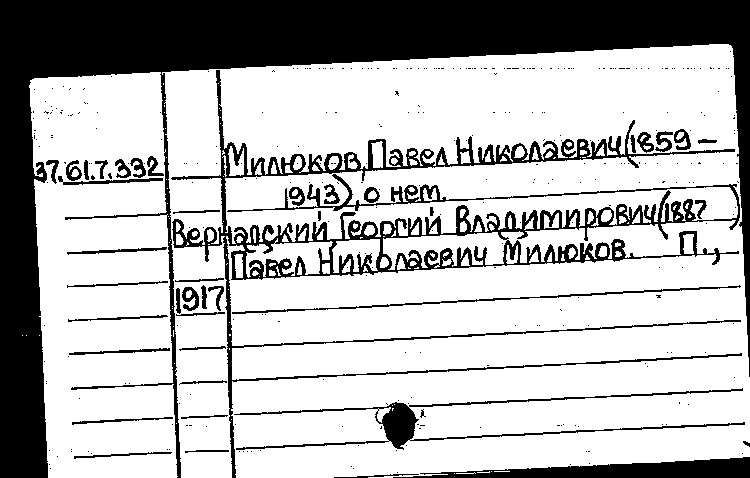 37.61.7.332 Милюков, Павел Николаевич (1859 –
1943), о нем.
Вернадский, Георгий Владимирович (1887 )
Павел Николаевич Милюков. П.,
1917